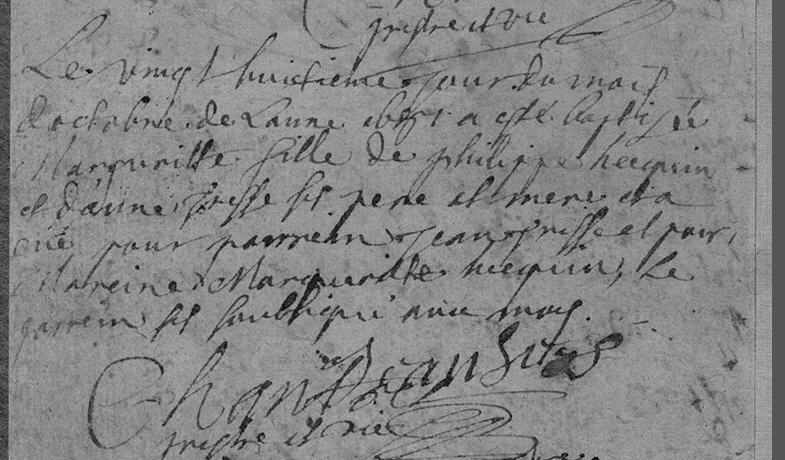 prestre et vic
Le vingt huictieme jour du mois
d'octobre de Lanne a esté baptisée
Marguritte fille de philippe hecquin
et d'anne josse ses pere et mere et a
eue pour parrein Jean josse et pour
Mareine Marguritte hecquin, Le
parrein s'est soubsigné avec moy.
Jean
prestre et vic